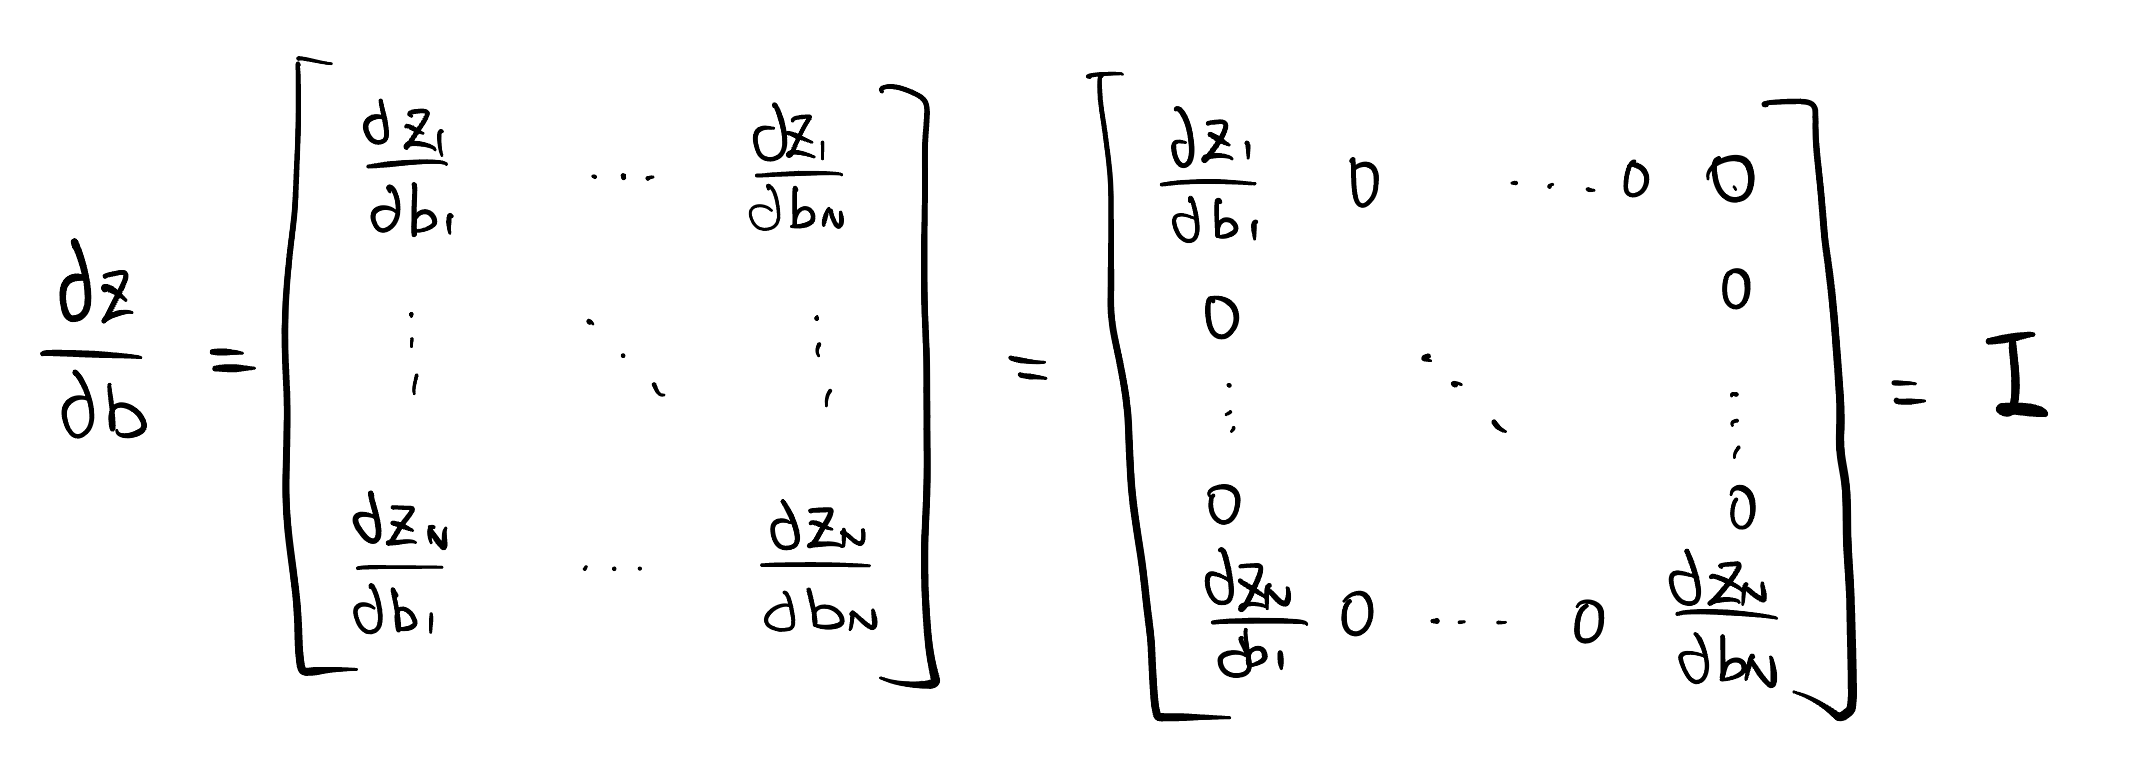 ∂z/∂b = [ ∂z₁/∂b₁ ... ∂z₁/∂b_N ; ⋮ ⋱ ⋮ ; ∂z_N/∂b₁ ... ∂z_N/∂b_N ] = [ ∂z₁/∂b₁ 0 ... 0 0 ; 0 0 ; ⋮ ⋱ ⋮ ; 0 0 ; ∂z_N/∂b₁ 0 ... 0 ∂z_N/∂b_N ] = I